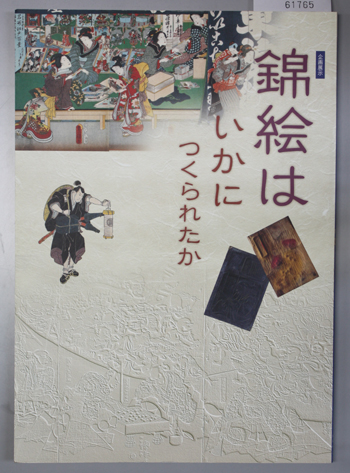 61765
企画展示
錦絵は
いかに
つくられたか